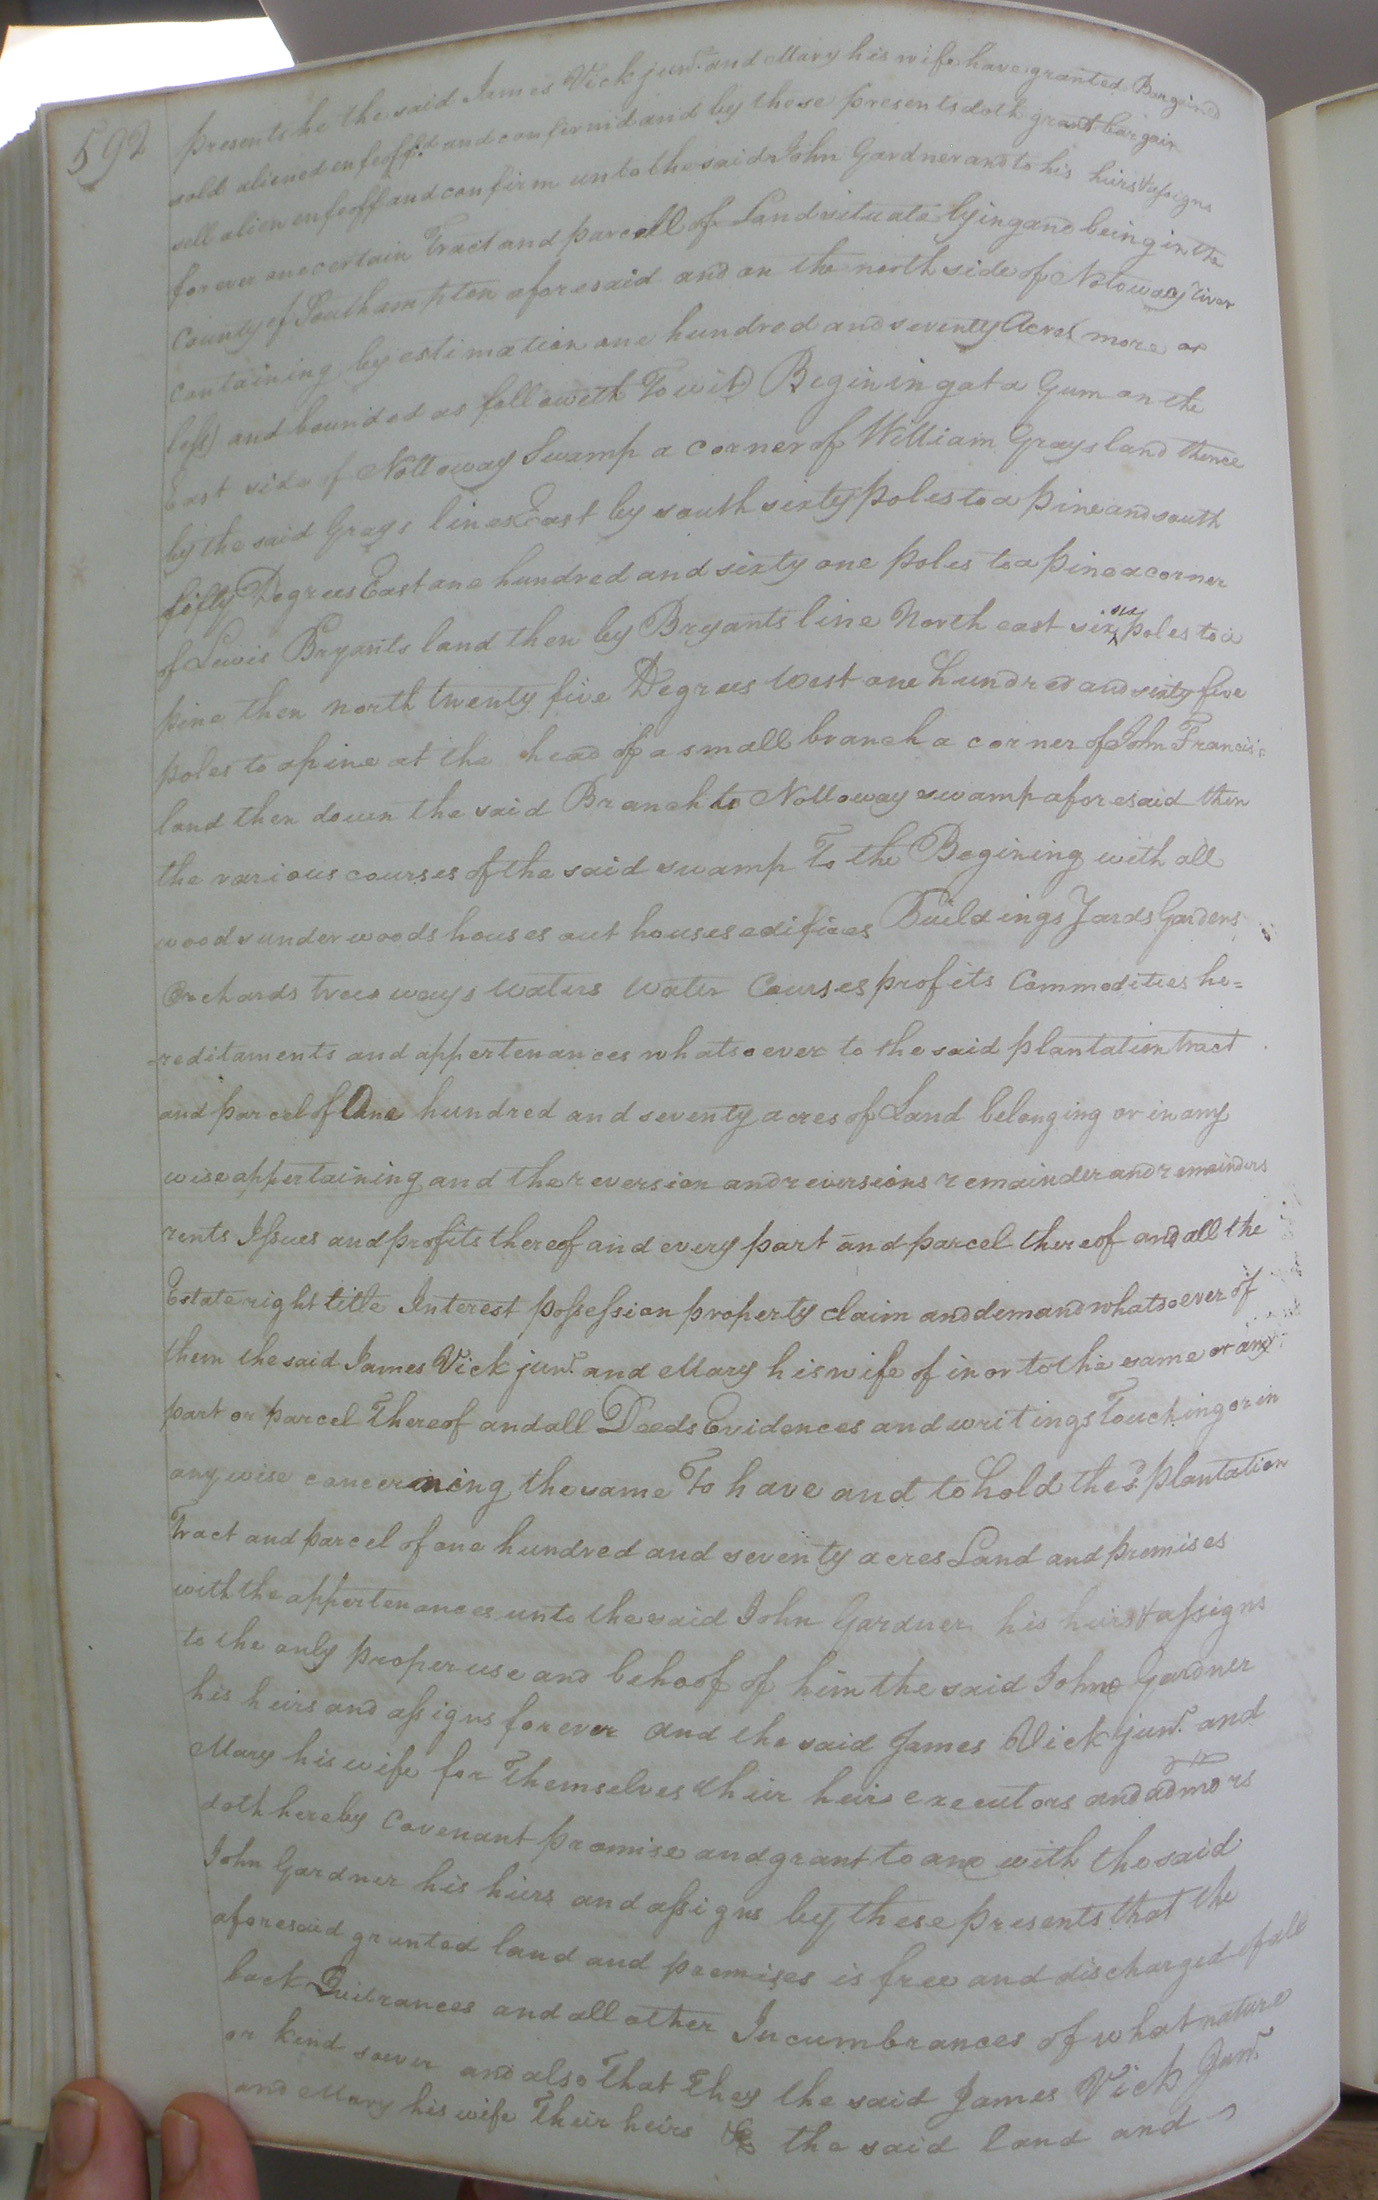 592
presents he the said James Vick junr. and Mary his wife have granted Bargained
sold aliened enfeoff'd and confirmd and by these presents doth grant bargain
sell alien enfeoff and confirm unto the said John Gardner and to his heirs & assigns
forever one certain Tract and parcell of Land situate lying and being in the
County of Southampton aforesaid and on the north side of Notoway river
containing by estimation one hundred and seventy Acres more or
less) and bounded as followeth To wit) Begining at a Gum on the
East side of Nottoway Swamp a corner of William Grays land thence
by the said Grays lines East by south sixty poles to a pine and south
fifty Degrees East one hundred and sixty one poles to a pine a corner
of Lewis Bryants land then by Bryants line North east six poles to a
pine then north twenty five Degrees West one hundred and sixty five
poles to a pine at the head of a small branch a corner of John Francis's
land then down the said Branch to Nottoway swamp aforesaid then
the various courses of the said swamp To the Begining with all
woods under woods houses out houses edifices Buildings Yards Gardens
Orchards trees ways waters water Courses profits Commodities he=
-reditaments and appertenances whatsoever to the said plantation tract
and parcel of One hundred and seventy acres of Land belonging or in any
wise appertaining and the reversion and reversions remainder and remainders
rents Issues and profits thereof and every part and parcel thereof and all the
Estate right title Interest possession property claim and demand whatsoever of
them the said James Vick junr. and Mary his wife of in or to the same or any
part or parcel Thereof and all Deeds Evidences and writings Touching or in
any wise concerning the same To have and to hold the sd. plantation
Tract and parcel of one hundred and seventy acres Land and premises
with the appertenances unto the said John Gardner his heirs & assigns
to the only proper use and behoof of him the said John Gardner
his heirs and assigns forever and the said James Vick junr. and
Mary his wife for Themselves their heirs executors and admors
doth hereby Covenant promise and grant to and with the said
John Gardner his heirs and assigns by these presents that the
aforesaid granted land and premises is free and discharged of all
back Quitrances and all other Incumbrances of what nature
or kind soever and also That They the said James Vick Junr.
and Mary his wife Their heirs &c the said land and